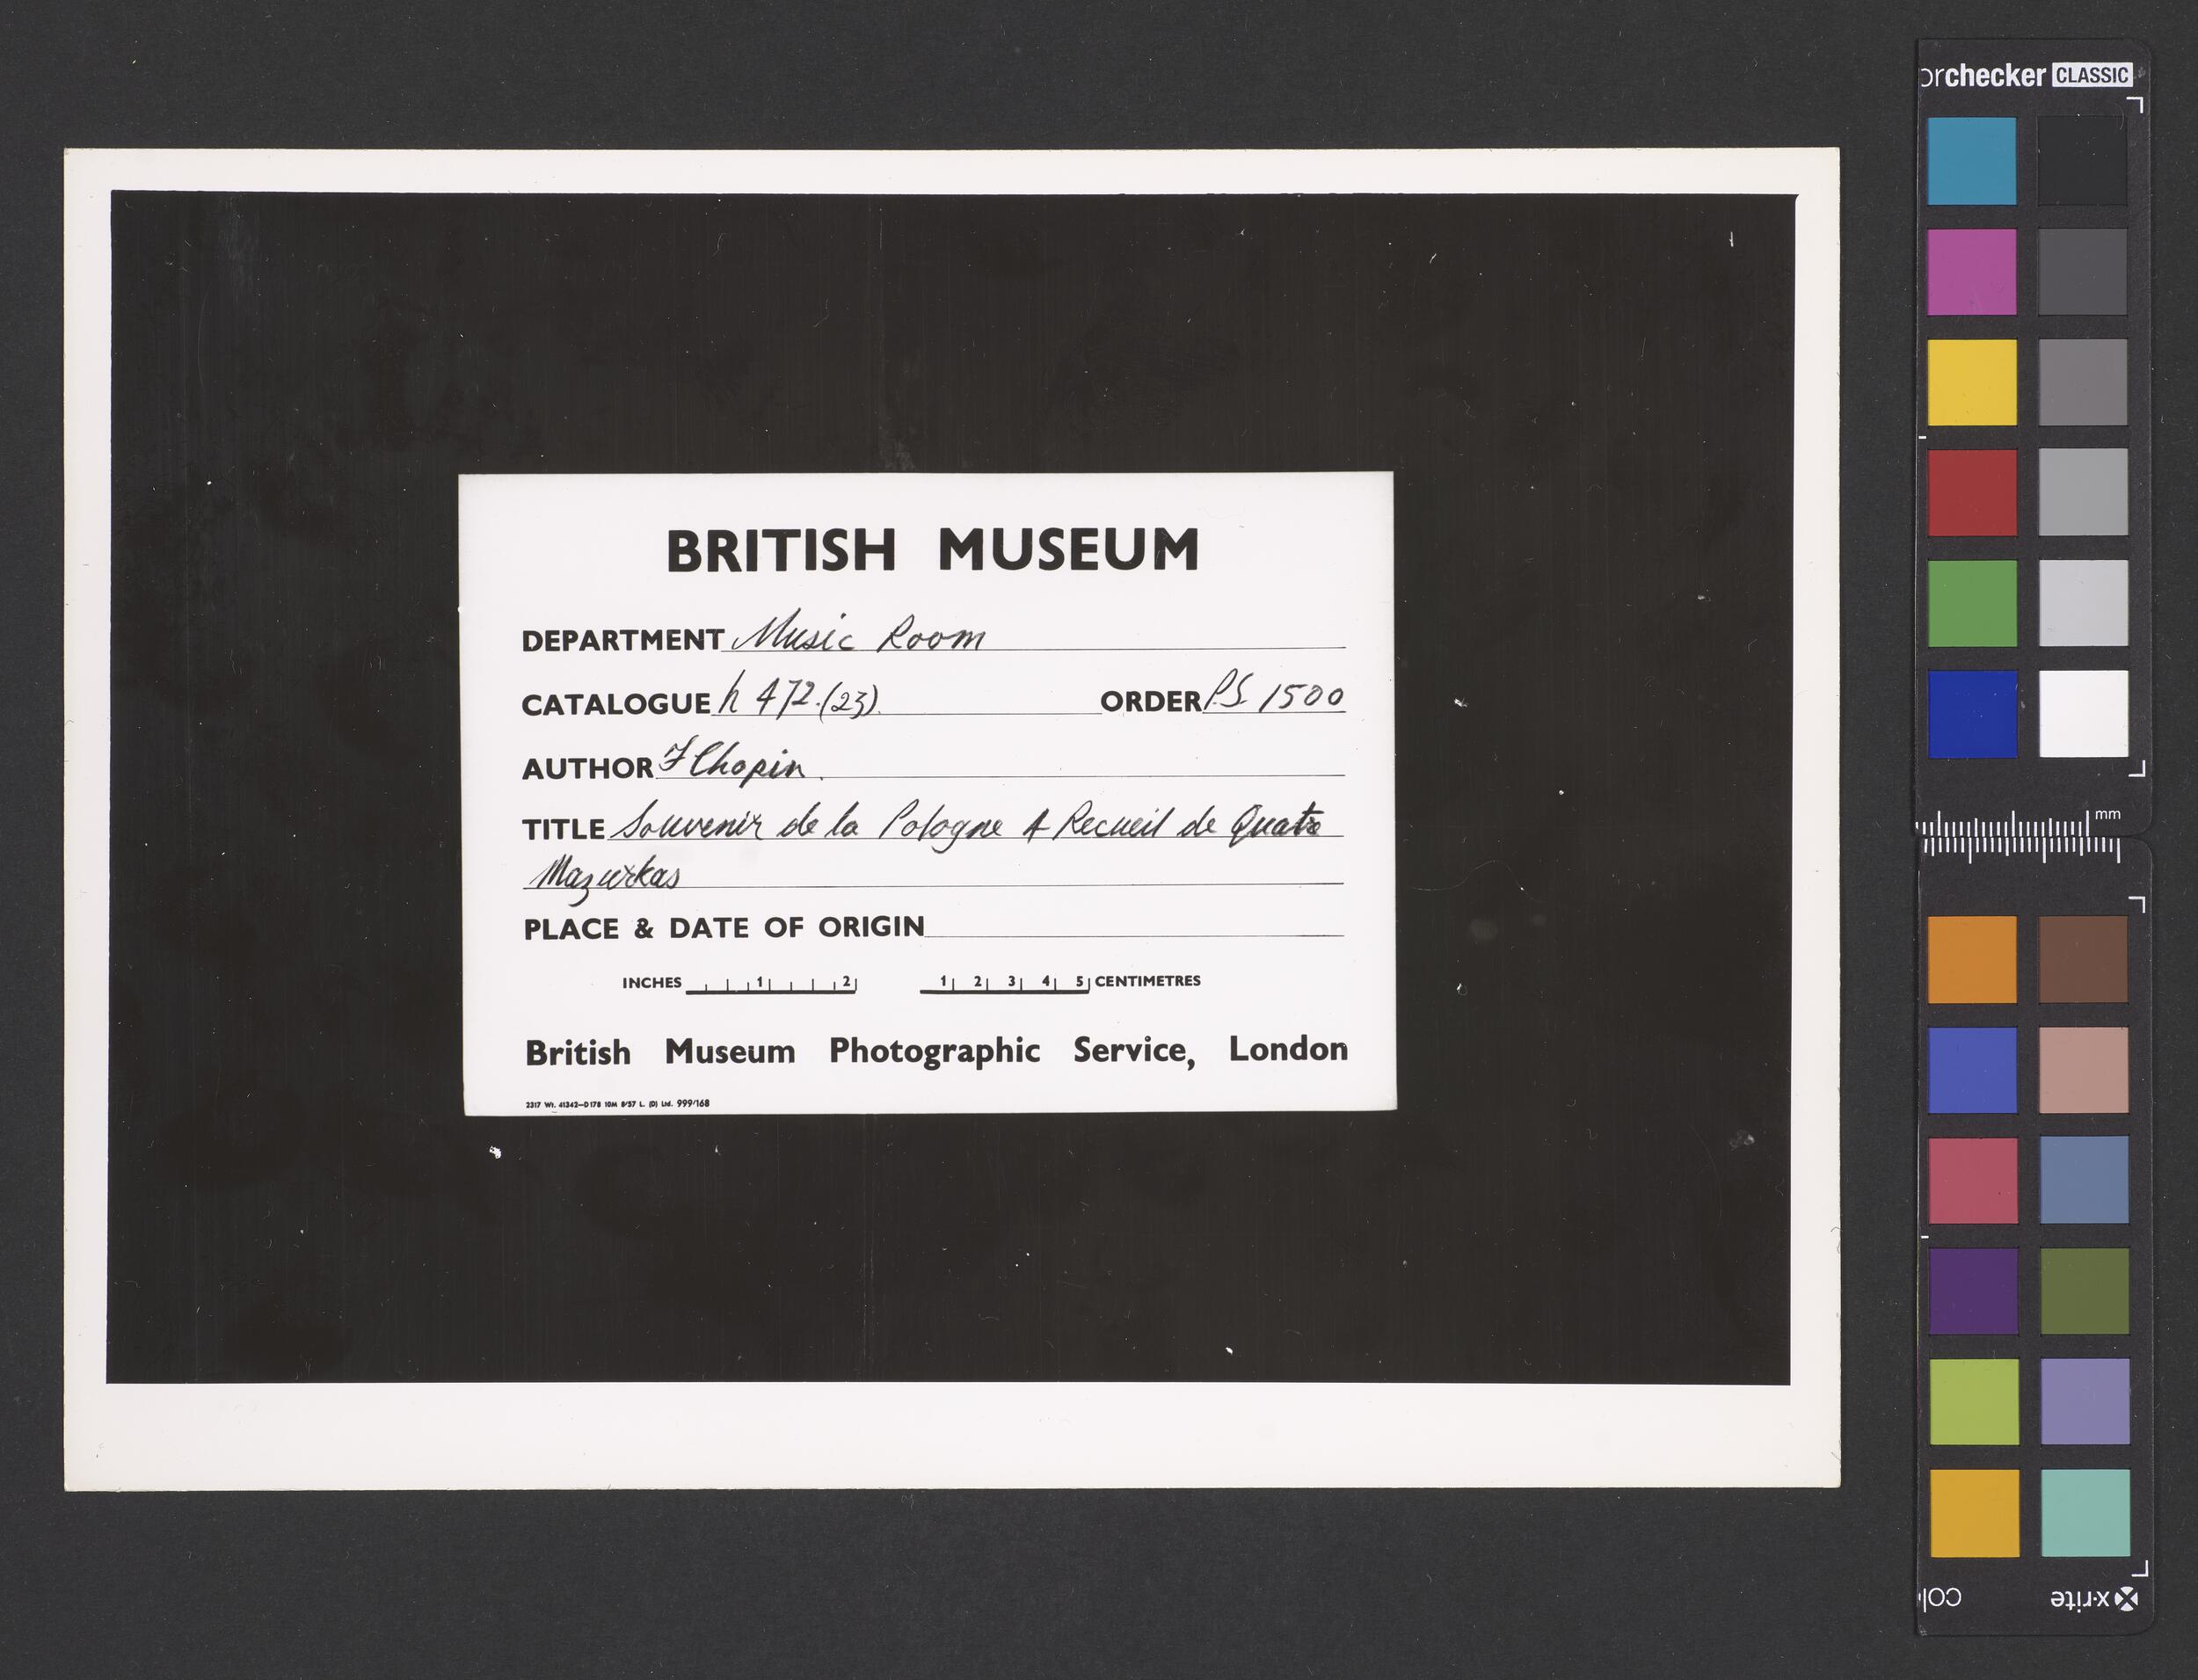 orchecker CLASSIC
BRITISH MUSEUM
DEPARTMENT Music Room
CATALOGUE h 472.(23). ORDER P.S. 1500
AUTHOR F Chopin.
TITLE Souvenir de la Pologne A Recueil de Quatre
Mazurkas
PLACE & DATE OF ORIGIN
INCHES 1 2 1 2 3 4 5 CENTIMETRES
British Museum Photographic Service, London
2317 Wt. 41342—D178 10M 8/57 L. (D) Ltd. 999/168
mm
x-rite
col